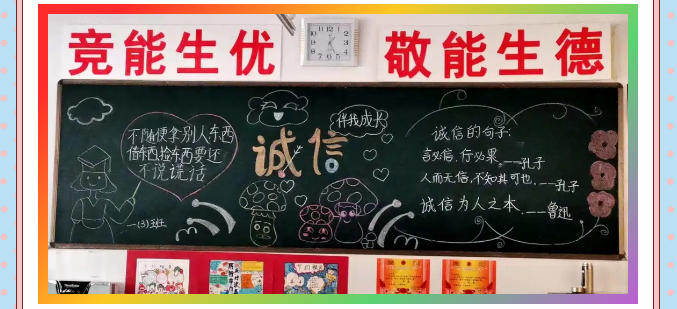 竞能生优
敬能生德
不随便拿别人东西
借东西捡东西要还
不说谎话
一(3)班
诚信
伴我成长
诚信的句子:
言必信,行必果。——孔子
人而无信,不知其可也。——孔子
诚信为人之本。——鲁迅